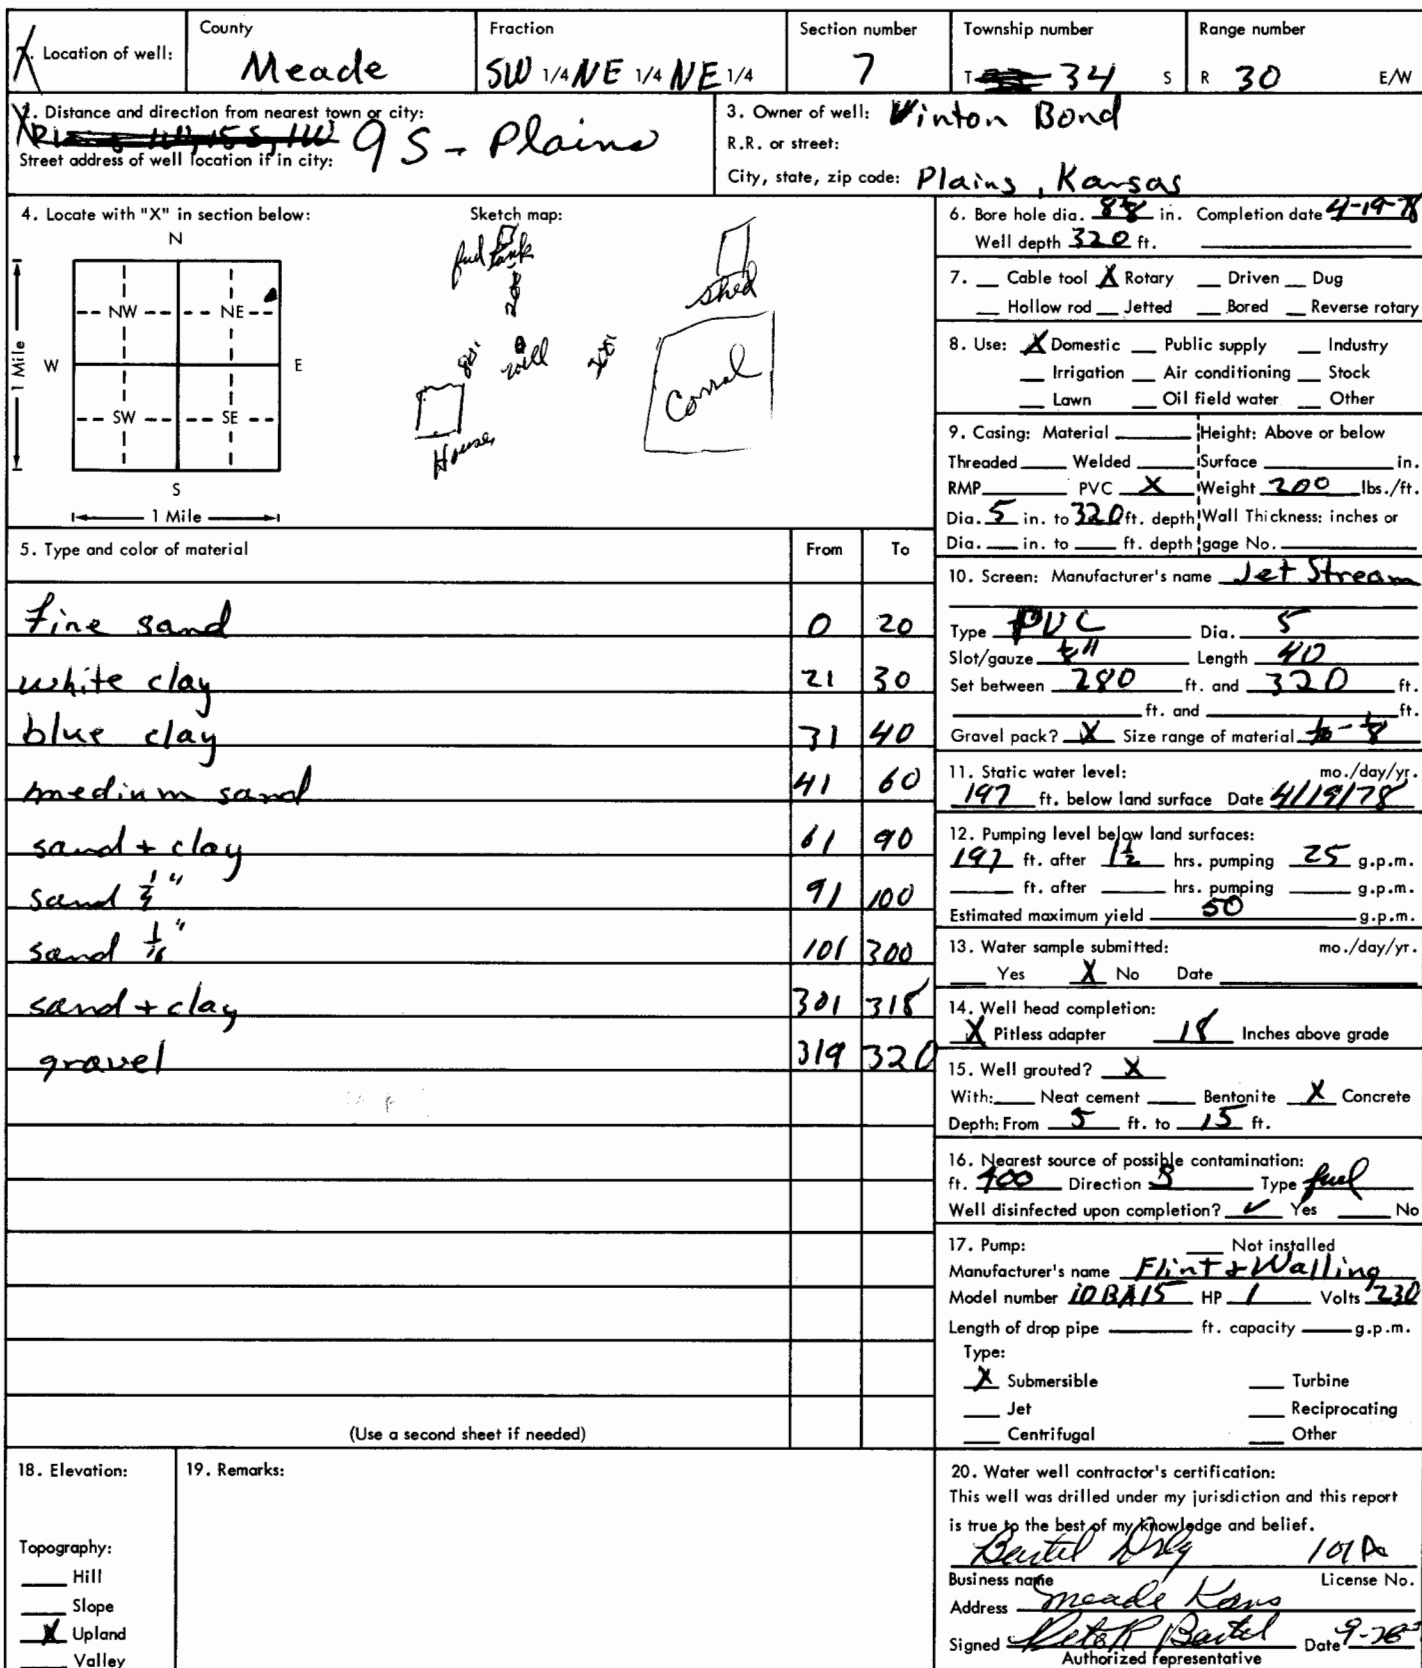 County Fraction Section number Township number Range number
Location of well: Meade SW 1/4 NE 1/4 NE 1/4 7 T 34 S R 30 E/W
2. Distance and direction from nearest town or city: 9 S - Plains
Street address of well location if in city:
3. Owner of well: Vinton Bond
R.R. or street:
City, state, zip code: Plains, Kansas
4. Locate with "X" in section below:
N
NW NE
W E
SW SE
S
1 Mile
1 Mile
Sketch map:
fuel tank
shed
well
Corral
House
5. Type and color of material From To
fine sand 0 20
white clay 21 30
blue clay 31 40
medium sand 41 60
sand + clay 61 90
sand 91 100
sand 1/16" 101 300
sand + clay 301 318
gravel 319 320
(Use a second sheet if needed)
6. Bore hole dia. in. Completion date 4-19-78
Well depth 320 ft.
7. Cable tool X Rotary Driven Dug
Hollow rod Jetted Bored Reverse rotary
8. Use: X Domestic Public supply Industry
Irrigation Air conditioning Stock
Lawn Oil field water Other
9. Casing: Material Height: Above or below
Threaded Welded Surface in.
RMP PVC X Weight 200 lbs./ft.
Dia. 5 in. to 320 ft. depth Wall Thickness: inches or
Dia. in. to ft. depth gage No.
10. Screen: Manufacturer's name Jet Stream
Type PVC Dia. 5
Slot/gauze 1/8" Length 40
Set between 280 ft. and 320 ft.
ft. and ft.
Gravel pack? X Size range of material
11. Static water level: mo./day/yr.
197 ft. below land surface Date 4/19/78
12. Pumping level below land surfaces:
197 ft. after 1 1/2 hrs. pumping 25 g.p.m.
ft. after hrs. pumping g.p.m.
Estimated maximum yield 50 g.p.m.
13. Water sample submitted: mo./day/yr.
Yes X No Date
14. Well head completion:
X Pitless adapter 18 Inches above grade
15. Well grouted? X
With: Neat cement Bentonite X Concrete
Depth: From 5 ft. to 15 ft.
16. Nearest source of possible contamination:
ft. Direction Type fuel
Well disinfected upon completion? ✓ Yes No
17. Pump: Not installed
Manufacturer's name Flint & Walling
Model number 10BA15 HP 1 Volts 230
Length of drop pipe ft. capacity g.p.m.
Type:
X Submersible Turbine
Jet Reciprocating
Centrifugal Other
18. Elevation:
Topography:
Hill
Slope
X Upland
Valley
19. Remarks:
20. Water well contractor's certification:
This well was drilled under my jurisdiction and this report
is true to the best of my knowledge and belief.
Bartel Drlg
Business name License No.
Address Meade Kans
Signed Bartel Date
Authorized representative